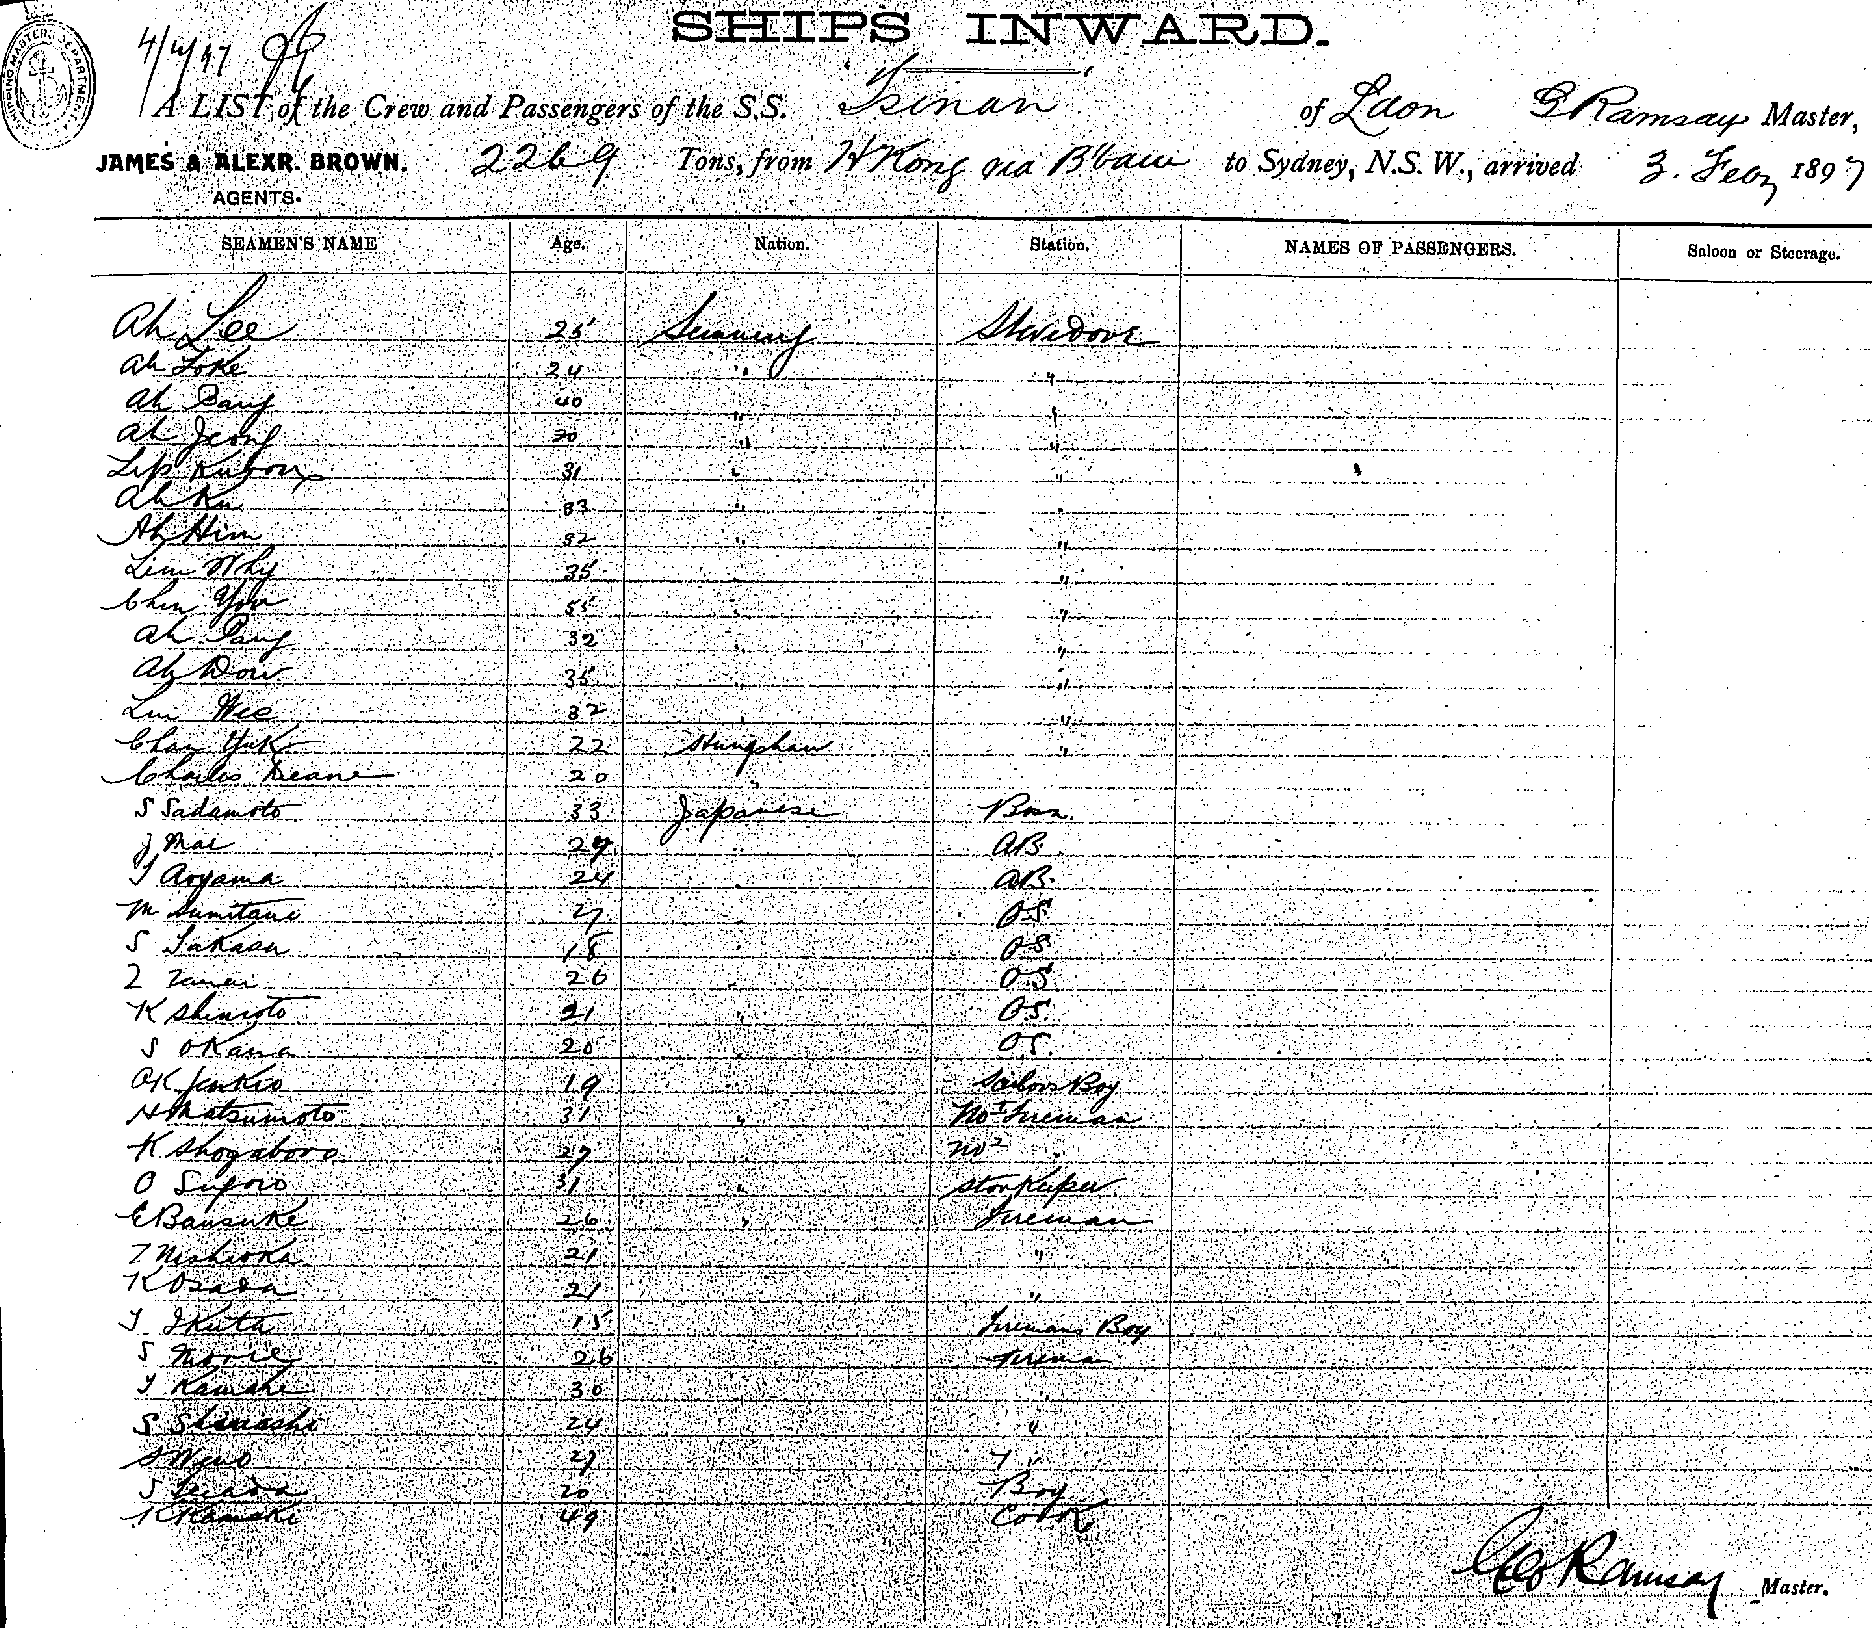 SHIPS INWARD.
4/2/97
A LIST of the Crew and Passengers of the S.S. Tsinan of Ldon G Ramsay Master,
JAMES & ALEXR. BROWN, 2269 Tons, from H Kong via B'bane to Sydney, N.S.W., arrived 3. Feby 1897
AGENTS.
SEAMEN'S NAME Age. Nation. Station. NAMES OF PASSENGERS. Saloon or Steerage.
Ah Lee 25 Stevedore
Ah Foke 24 " "
Ah 40 " "
Ah Jeong 30 " "
31 " "
Ah Ku 33 " "
Ah Him 32 " "
Lim Why 35 " "
Chin You 55 " "
Ah 32 " "
Ah Dow 35 " "
Lim Wee 32 " "
Chan Yuk 22 Hungshan "
Charles Deane 20 "
S Sadamoto 33 Japanese Bosn.
J Mae 29 " AB.
T Aoyama 24 " AB.
M Sumitani 27 " O.S.
S Takasu 18 " OS
26 O.S.
K Shimoto 21 " O.S.
S Okama 20 " OS.
OK Jenkio 19 " Sailors Boy
H Matsumoto 31 " No 1 Fireman
K Shogaboro 27 " No 2 "
O Sugoro 31 " Storkeeper
E Bansuke 26 " Fireman
T Nishioka 21 "
K Osada 21 "
T Ikuta 15 Firemans Boy
S 26 Fireman
T Kamake 30 "
S 24 "
S Weno 27 "
S Terada 20 Boy
K Kamaki 49 Cook
Geo Ramsay Master.